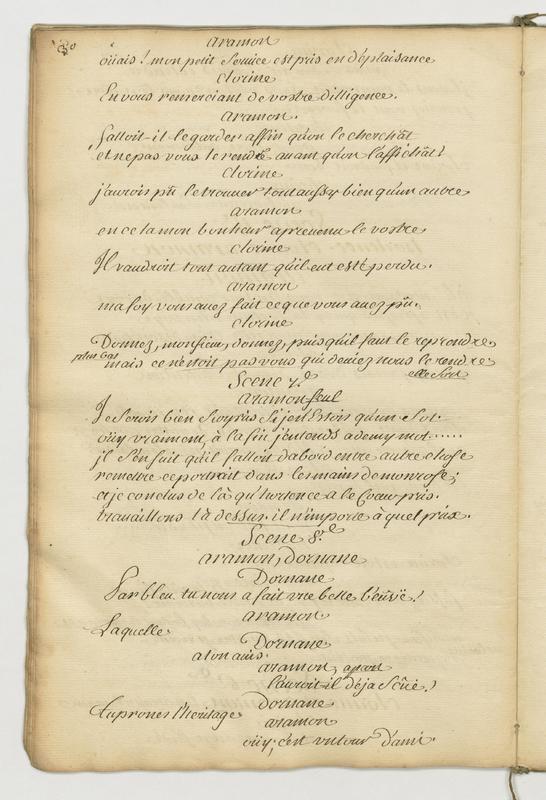 80
aramon
oüais! mon petit service est pris en déplaisance
Clorine
En vous remerciant de vostre dilligence.
aramon.
falloit-il le garder affin qu'on le cherchât
et ne pas vous le rendre auant qu'on l'affichât?
Clorine
j'aurois pû le trouuer tout aussy bien qu'un autre
aramon
en cela mon bonheur a preuenu le vostre
Clorine
Il vaudroit tout autant qu'il eut esté perdu.
aramon
ma foy vous auez fait ce que vous auez pû.
Clorine
Donnez, monsieur, donnez, puisqu'il faut le reprendre
plus bas
mais ce n'étoit pas vous qui deuiez nous le rendre
elle sort
Scene 7.e
aramon seul
Je serois bien surpris si j'en estois qu'un sot.
oüy vraiment, à la fin j'entends a demy mot......
il s'en suit qu'il falloit d'abord entre autre chose
remettre ce portrait dans les mains de monrose;
et je conclus de là qu'hortence a le coeur pris.
trauaillons là dessus. il n'importe à quel prix.
Scene 8.e
aramon, Dornane
Dornane
Parbleu tu nous a fait une belle béuüe!
aramon
Laquelle
Dornane
a ton auis.
aramon, apart
l'auroit-il déja sçüe?
Dornane
tu prones l'heritage
aramon
oüy; c'est un tour d'ami.